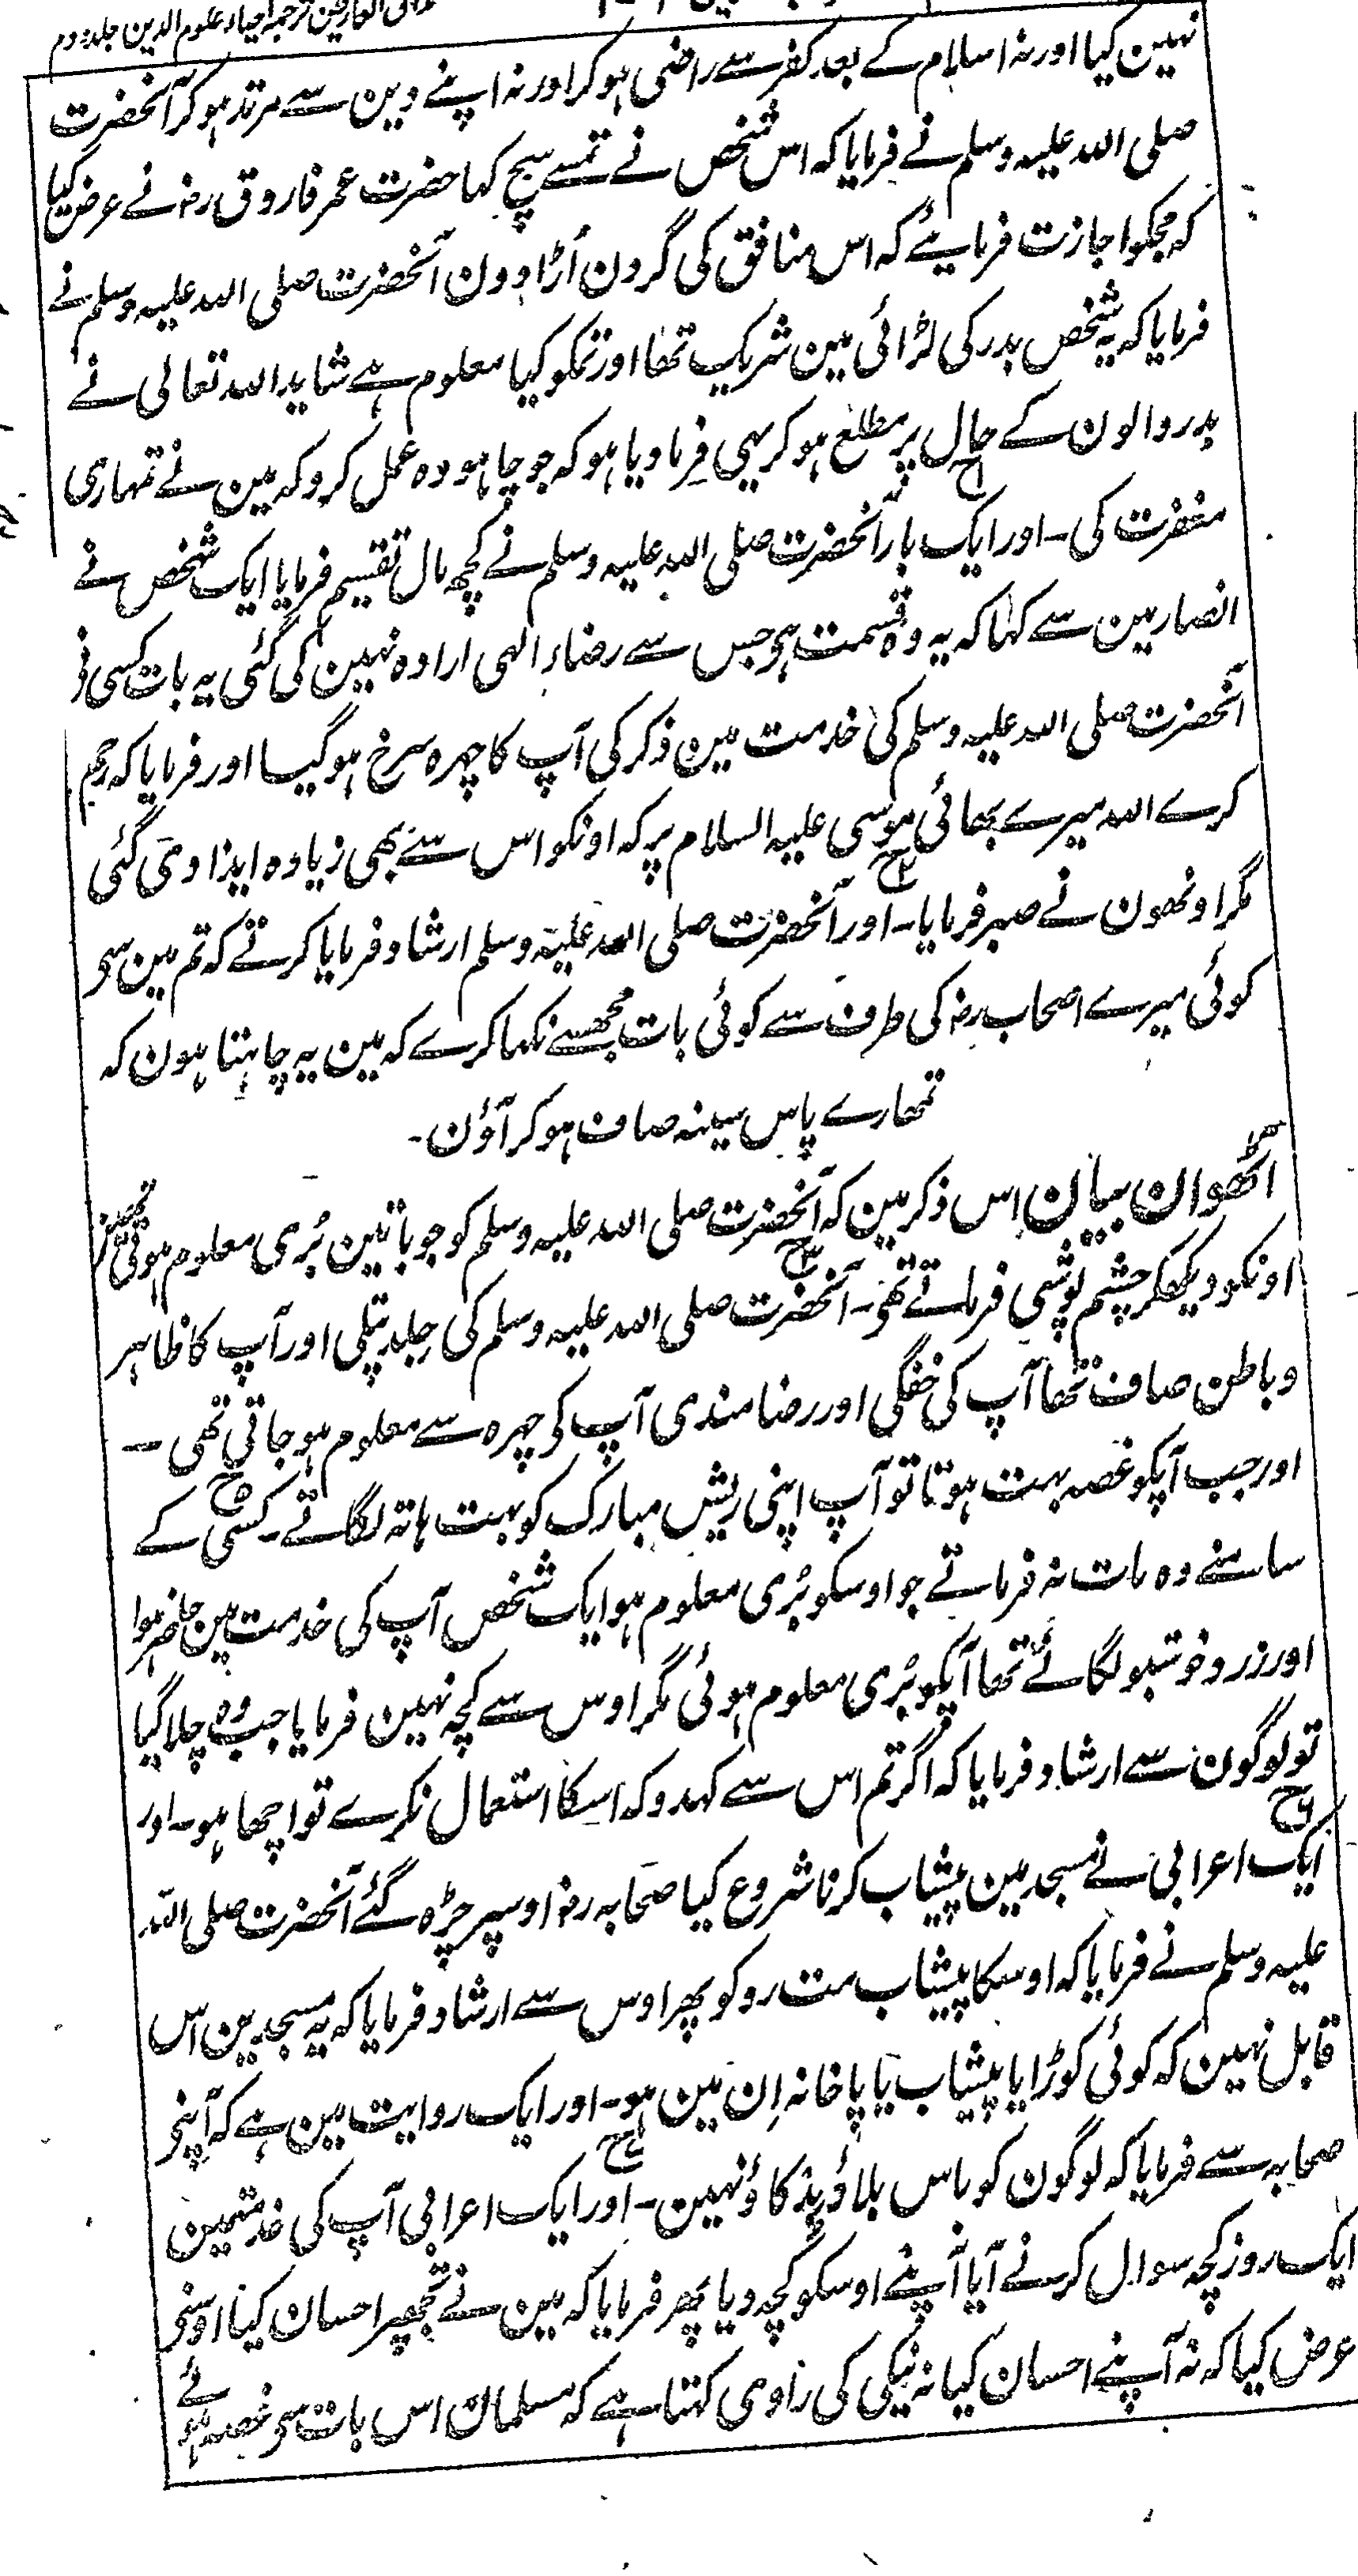 ترجمہ احیاء علوم الدین جلد دوم
نہین کیا اور نہ اسلام کے بعد کفر سے راضی ہو کر اور نہ اپنے دین سے مرتد ہو کر آنحضرت
صلی اللہ علیہ وسلم نے فرمایا کہ اس شخص نے تمسے سچ کہا حضرت عمر فاروق رضہ نے عرض کیا
کہ مجکو اجازت فرمایئے کہ اس منافق کی گردن اُڑا دون آنحضرت صلی اللہ علیہ وسلم نے
فرمایا کہ یہ شخص بدر کی لڑائی مین شریک تھا اور تمکو کیا معلوم ہے شاید اللہ تعالی نے
بدر والون کے حال پر مطلع ہو کر یہی فرما دیا ہو کہ جو چاہو وہ عمل کرو کہ مین نے تمہاری
مغفرت کی ۔ اور ایک بار آنحضرت صلی اللہ علیہ وسلم نے کچھ مال تقسیم فرمایا ایک شخص نے
انصار مین سے کہا کہ یہ وہ قسمت ہی جس سے رضاء الٰہی ارادہ نہین کی گئی یہ بات کسی نے
آنحضرت صلی اللہ علیہ وسلم کی خدمت مین ذکر کی آپ کا چہرہ سرخ ہو گیا اور فرمایا کہ رحم
کرے اللہ میرے بھائی موسی علیہ السلام پر کہ اونکو اس سے بھی زیادہ ایذا دی گئی
مگر اونھون نے صبر فرمایا ۔ اور آنحضرت صلی اللہ علیہ وسلم ارشاد فرمایا کرتے کہ تم مین سی
کوئی میرے اصحاب رضہ کی طرف سے کوئی بات مجھسے نکہا کرے کہ مین یہ چاہتا ہون کہ
تمھارے پاس سینہ صاف ہو کر آؤن ۔
آٹھوان بیان اِس ذکر مین کہ آنحضرت صلی اللہ علیہ وسلم کو جو باتین بُری معلوم ہوتی تھین
اونکو دیکھکر چشم پوشی فرماتے تھے ۔ آنحضرت صلی اللہ علیہ وسلم کی جلد پتلی اور آپ کا ظاہر
و باطن صاف تھا آپ کی خفگی اور رضامندی آپ کے چہرہ سے معلوم ہو جاتی تھی ۔
اور جب آپکو غصہ بہت ہوتا تو آپ اپنی ریش مبارک کو بہت ہاتہ لگاتے ۔ کسی کے
سامنے وہ بات نہ فرماتے جو اوسکو بُری معلوم ہو ایک شخص آپ کی خدمت مین حاضر ہوا
اور زرد خوشبو لگائے تھا آپکو بُری معلوم ہوئی مگر اوس سے کچہ نہین فرمایا جب وہ چلا گیا
تو لوگون سے ارشاد فرمایا کہ اگر تم اس سے کہدو کہ اسکا استعمال نکرے تو اچھا ہو ۔ اور
ایک اعرابی نے مسجد مین پیشاب کرنا شروع کیا صحابہ رضہ اوسپر چڑہ گئے آنحضرت صلی اللہ
علیہ وسلم نے فرمایا کہ اوسکا پیشاب مت روکو پھر اوس سے ارشاد فرمایا کہ یہ مسجدین اس
قابل نہین کہ کوئی کوڑا یا پیشاب یا پاخانہ اِن مین ہو ۔ اور ایک روایت مین ہے کہ آپنے
صحابہ سے فرمایا کہ لوگون کو پاس بلاؤ بِدکاؤ نہین ۔ اور ایک اعرابی آپ کی خدمتمین
ایک روز کچہ سوال کرنے آیا آپنے اوسکو کچہ دیا پھر فرمایا کہ مین نے تجھپر احسان کیا اوسنے
عرض کیا کہ نہ آپنے احسان کیا نہ نیکی کی راوی کہتا ہے کہ مسلمان اس بات سی غصہ ہوئے